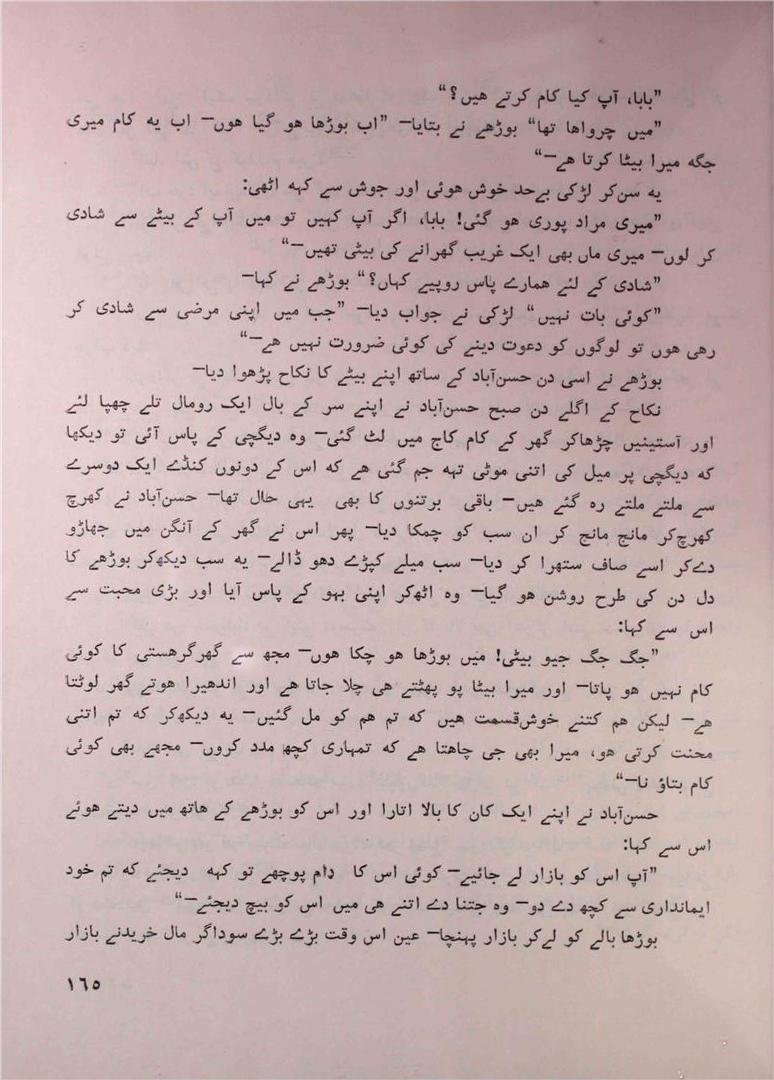 ”بابا، آپ کیا کام کرتے هیں؟“
”میں چرواها تھا“ بوڑھے نے بتایا— ”اب بوڑھا هو گیا هوں— اب یه کام میری
جگه میرا بیٹا کرتا هے—“
یه سن‌کر لڑکی بےحد خوش هوئی اور جوش سے کهه اٹھی:
”میری مراد پوری هو گئی! بابا، اگر آپ کہیں تو میں آپ کے بیٹے سے شادی
کر لوں— میری ماں بھی ایک غریب گھرانے کی بیٹی تھیں—“
”شادی کے لئے همارے پاس روپیے کہاں؟“ بوڑھے نے کہا—
”کوئی بات نہیں“ لڑکی نے جواب دیا— ”جب میں اپنی مرضی سے شادی کر
رهی هوں تو لوگوں کو دعوت دینے کی کوئی ضرورت نہیں هے—“
بوڑھے نے اسی دن حسن‌آباد کے ساتھ اپنے بیٹے کا نکاح پڑھوا دیا—
نکاح کے اگلے دن صبح حسن‌آباد نے اپنے سر کے بال ایک رومال تلے چھپا لئے
اور آستینیں چڑھاکر گھر کے کام کاج میں لٹ گئی— وه دیگچی کے پاس آئی تو دیکھا
که دیگچی پر میل کی اتنی موٹی تہه جم گئی هے که اس کے دونوں کنڈے ایک دوسرے
سے ملتے ملتے ره گئے هیں— باقی برتنوں کا بھی یہی حال تھا— حسن‌آباد نے کھرچ
کھرچ‌کر مانج مانج کر ان سب کو چمکا دیا— پھر اس نے گھر کے آنگن میں جھاڑو
دےکر اسے صاف ستھرا کر دیا— سب میلے کپڑے دھو ڈالے— یه سب دیکھ‌کر بوڑھے کا
دل دن کی طرح روشن هو گیا— وه اٹھ‌کر اپنی بہو کے پاس آیا اور بڑی محبت سے
اس سے کہا:
”جگ جگ جیو بیٹی! میں بوڑھا هو چکا هوں— مجھ سے گھرگرهستی کا کوئی
کام نہیں هو پاتا— اور میرا بیٹا پو پھٹتے هی چلا جاتا هے اور اندھیرا هوتے گھر لوٹتا
هے— لیکن هم کتنے خوش‌قسمت هیں که تم هم کو مل گئیں— یه دیکھ‌کر که تم اتنی
محنت کرتی هو، میرا بھی جی چاهتا هے که تمہاری کچھ مدد کروں— مجھے بھی کوئی
کام بتاؤ نا—“
حسن‌آباد نے اپنے ایک کان کا بالا اتارا اور اس کو بوڑھے کے هاتھ میں دیتے هوئے
اس سے کہا:
”آپ اس کو بازار لے جائیے— کوئی اس کا دام پوچھے تو کہه دیجئے که تم خود
ایمانداری سے کچھ دے دو— وه جتنا دے اتنے هی میں اس کو بیچ دیجئے—“
بوڑھا بالے کو لےکر بازار پہنچا— عین اس وقت بڑے بڑے سوداگر مال خریدنے بازار
١٦٥